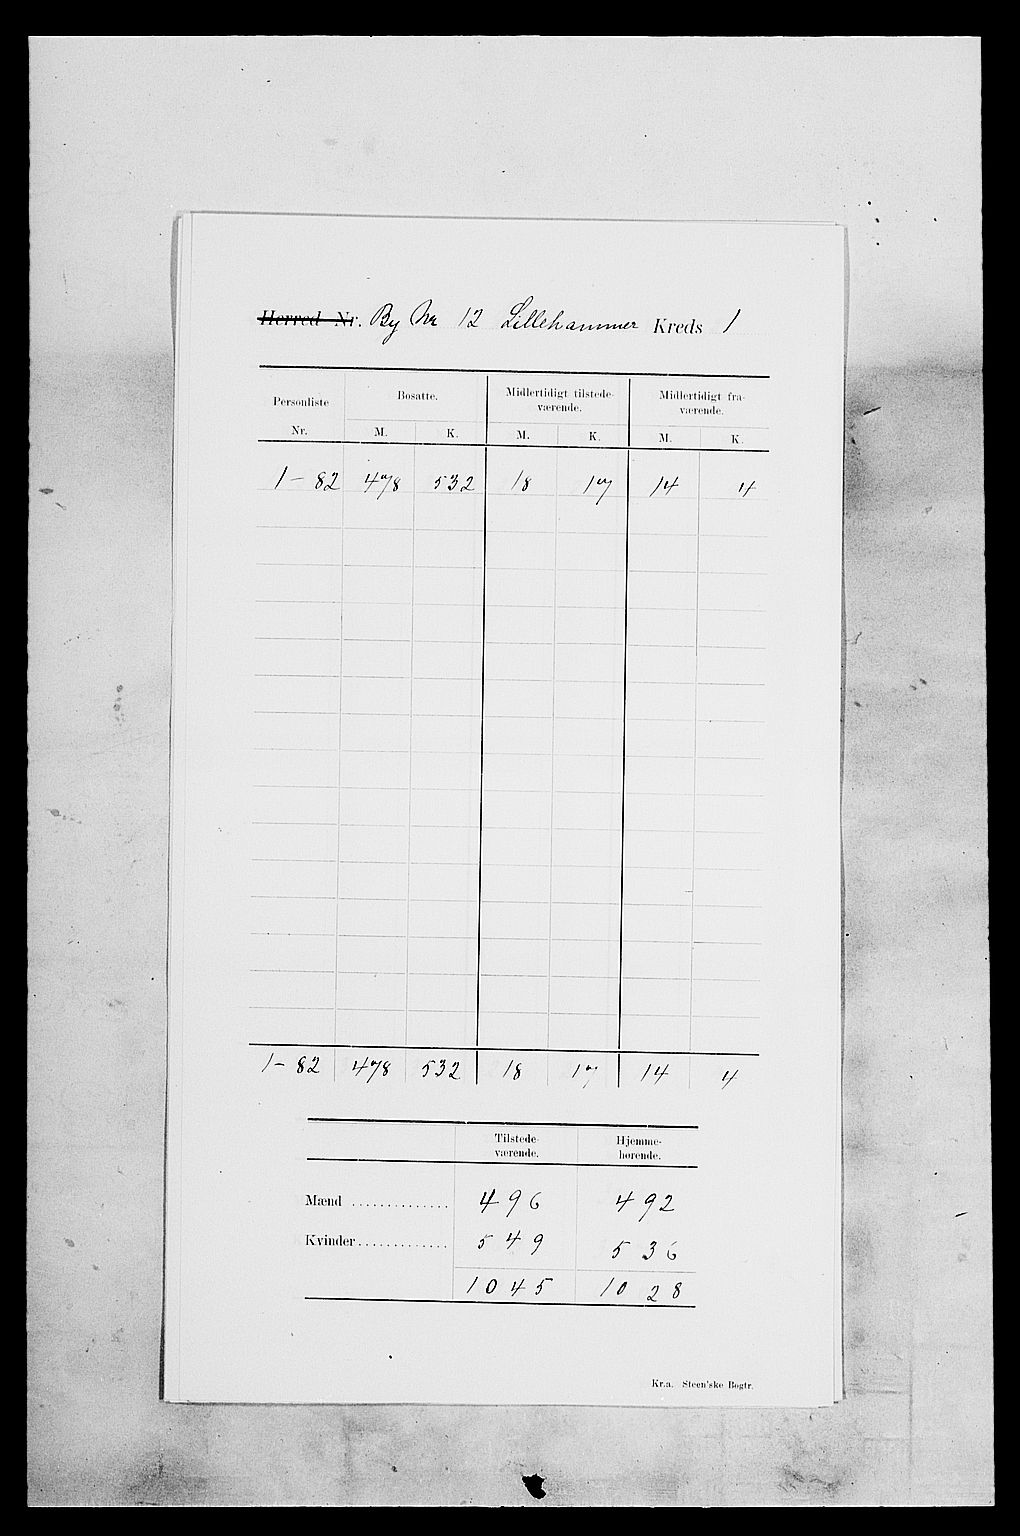 Herred Nr. By Nr 12 Lillehammer Kreds 1
Personliste Bosatte. Midlertidigt tilstede- Midlertidigt fra-
værende. værende.
Nr. M. K. M. K. M. K.
1-82 478 532 18 17 14 4
1-82 478 532 18 17 14 4
Tilstede- Hjemme-
værende. hørende.
Mænd .............. 496 492
Kvinder............. 549 536
1045 1028
Kr.a. Steen'ske Bogtr.